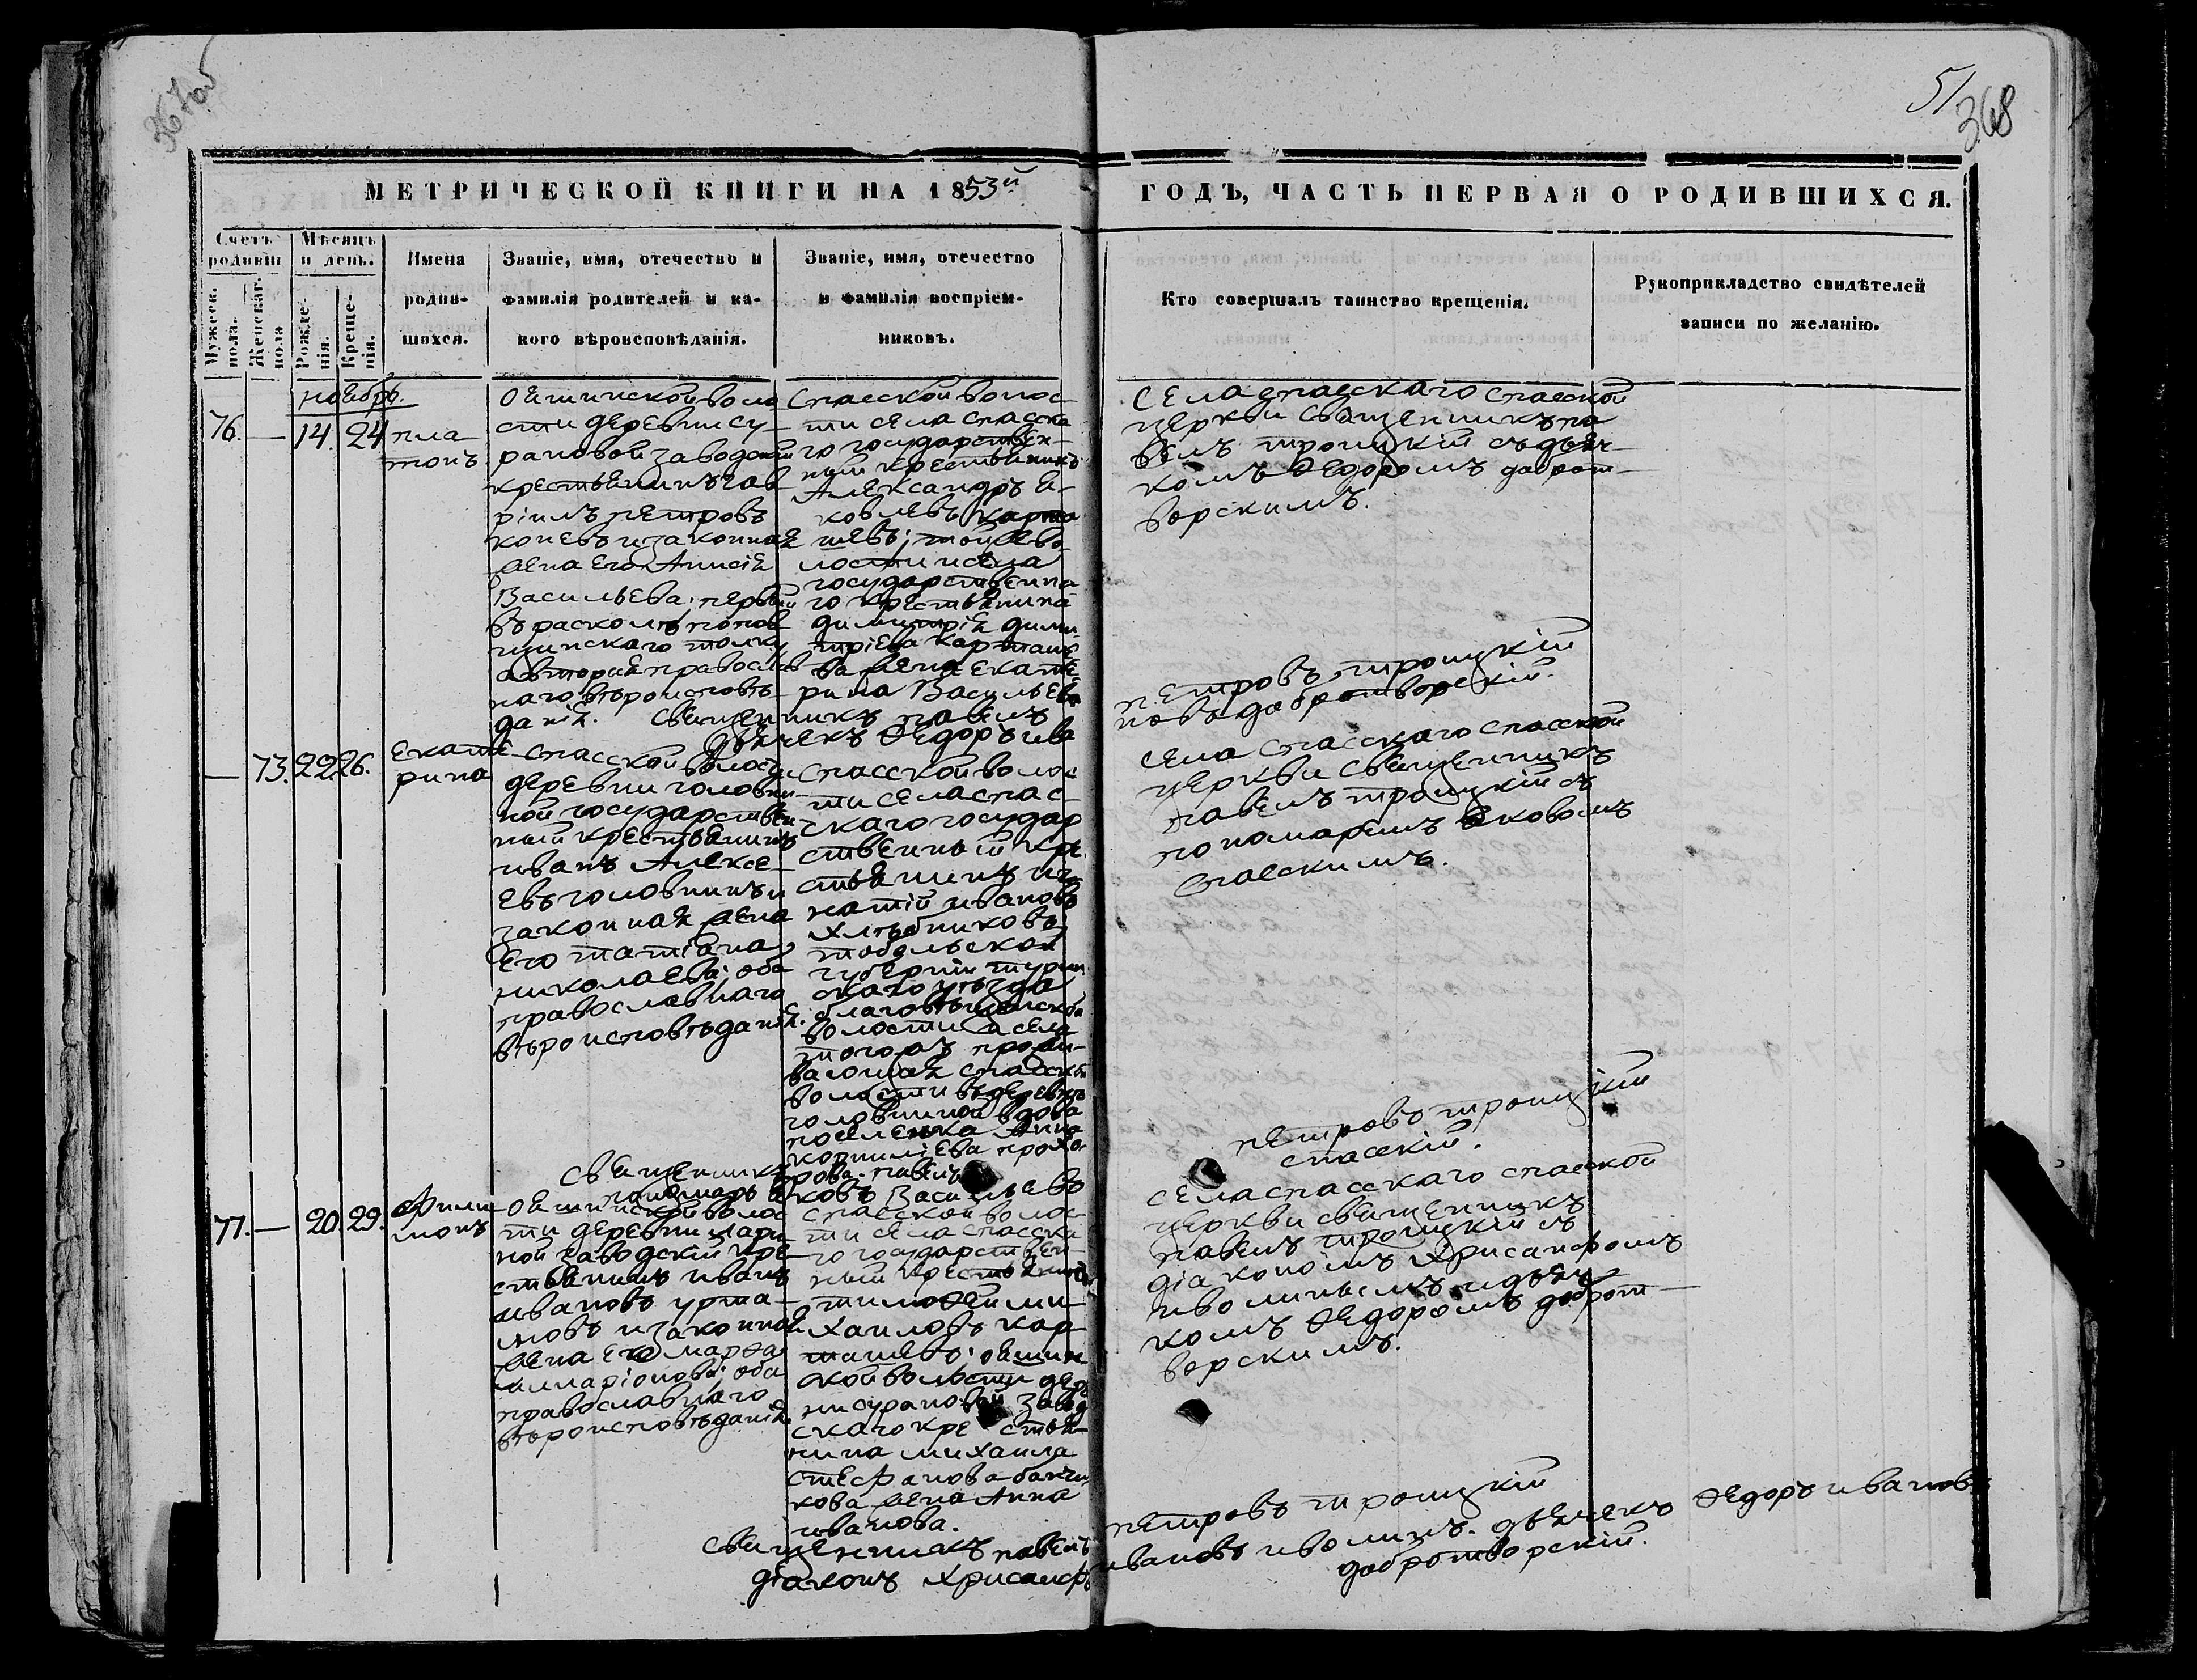 367об
51
368
МЕТРИЧЕСКОЙ КНИГИ НА 1853й
ГОДЪ, ЧАСТЬ ПЕРВАЯ О РОДИВШИХСЯ.
Счетъ родившихся
Мужеск. пола.
Женскаг. пола
Мѣсяцъ и день.
Рожденія.
Крещенія.
Имена
родив-
шихся.
Званіе, имя, отечество и
фамилія родителей и ка-
кого вѣроисповѣданія.
Званіе, имя, отечество
и фамилія воспріем-
никовъ.
Кто совершалъ таинство крещенія.
Рукоприкладство свидѣтелей
записи по желанію.
ноября.
76. — 14. 24
пла-
тонъ.
сти деревни Су-
рановой заводскій
крестьянинъ Гав-
ріилъ петровъ
коневъ и законная
жена его Анисія
Васильева; первый
въ расколѣ попов-
щинскаго толку,
а вторая православ
наго вѣроисповѣ-
данія.
Спасской волос-
ти села спасска
го государствен-
ный крестьянинъ
Александръ я-
ковлевъ карта
шевъ; той же во-
лости и села
государственна
го крестьянина
димитрія дими-
тріева карташе
ва жена екате-
рина Васильева
села спасскаго спасской
церкви священникъ па
велъ троицкій съ дьяч-
комъ Ѳедоромъ доброт-
ворскимъ.
священникъ павелъ петровъ троицкій
дьячекъ Ѳедоръ ива новъ добротворскій.
— 73. 22. 26.
екате-
рина
спасской волости
деревни головни-
ной государствен
ный крестьянинъ
иванъ Алексе-
евъ головнинъ и
законная жена
его татіана
николаева; оба
православнаго
вѣроисповѣданія.
спасской волос
ти села спас-
скаго государ
ственный кре-
стьянинъ иг-
натій ивановъ
хлѣбниковъ,
тобольской
губерніи турин
скаго уѣзда
благовѣщенской
волости и села
тогожъ прожи-
вающая спасской
волости въ деревнѣ
головниной вдова
поселенка Анна
корниліева прохо-
рова.
села спасскаго спасской
церкви священникъ
павелъ троицкій съ
пономаремъ яковомъ
спасскимъ.
священникъ павелъ петровъ троицкій
пономарь яковъ Васильевъ спасскій.
77. — 20. 29.
Фили-
монъ
ояшинской волос
ти деревни лари-
ной заводскій кре-
стьянинъ иванъ
ивановъ урта-
мовъ и законная
жена его марѳа
илларіонова; оба
православнаго
вѣроисповѣданія.
спасской волос-
ти села спасска
го государствен-
ный крестьянинъ
тимоѳей ми-
хаиловъ кар-
ташевъ; ояшин-
ской волости дерев
ни сурановой завод
скаго кре стья-
нина михаила
стефанова банни-
кова жена Анна
иванова.
села спасскаго спасской
церкви священникъ
павелъ троицкій съ
діакономъ хрисанфомъ
и дьяч-
комъ Ѳедоромъ доброт-
ворскимъ.
священникъ павелъ петровъ троицкій
діаконъ хрисанфъ ивановъ дьячекъ Ѳедоръ ивановъ
добротворскій.